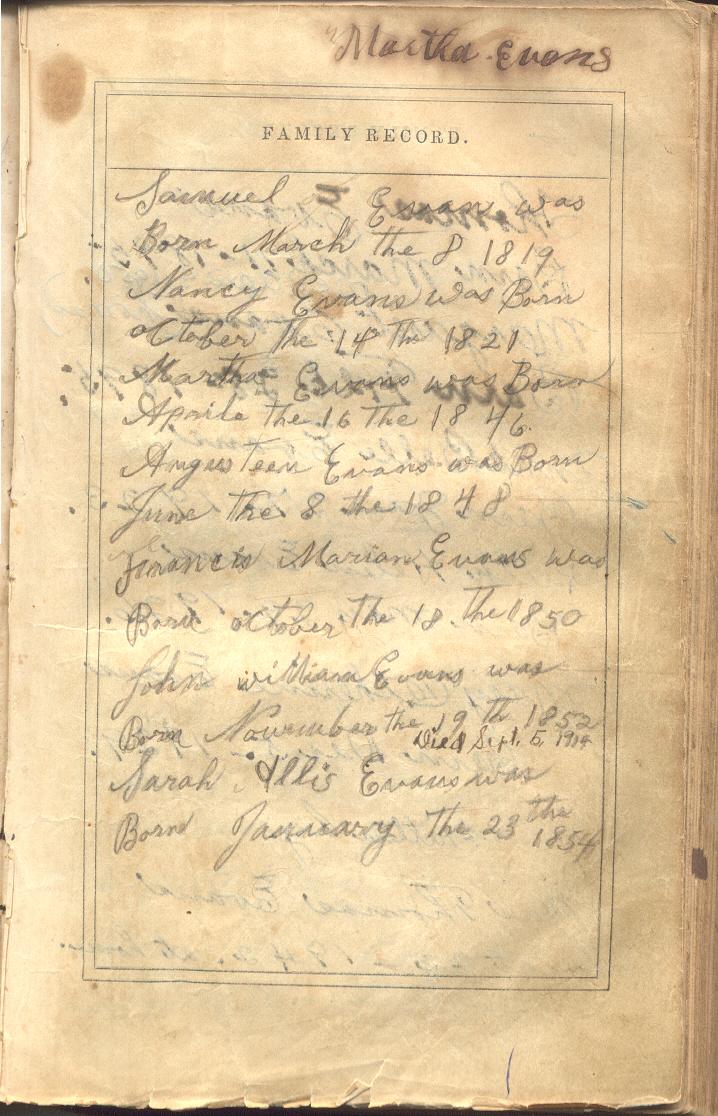 Martha Evans
FAMILY RECORD.
Samuel Evans was
Born March the 8 1819
Nancy Evans was Born
october the 14 the 1821
Martha Evans was Born
Aprile the 16 the 1846.
Angusteen Evans was Born
June the 8 the 1848
Francis Marian Evans was
Born october the 18. the 1850
John william Evans was
Born Novumber the 19 th 1852
Died Sept. 5, 1914
Sarah Allis Evans was
Born Januuary the 23 the
1854